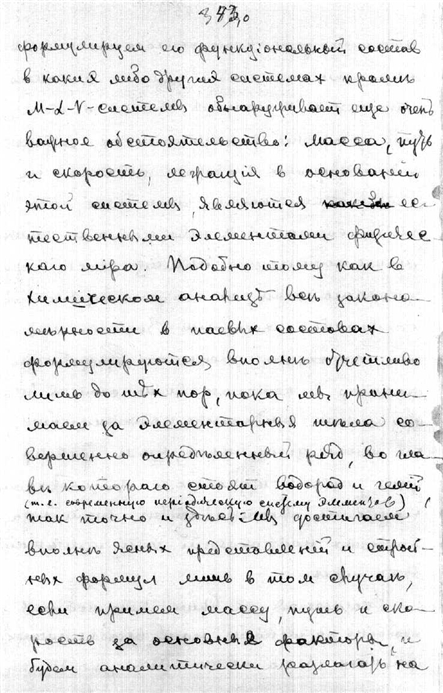 343
формулируем его функціональный состав
в какия либо другия системах кроме
M-L-V-системы обнаруживает еще очень
важное обстоятельство: масса, путь
и скорость, лежащія в основаніи
этой системы, являются ес-
тественными элементами физичес-
каго міра. Подобно тому как в
химическом анализѣ всѣ законо-
мѣрности в паевых составах
формулируются вполнѣ отчетливо
лишь до тѣх пор, пока мы прини-
маем за элементарныя тѣла со-
вершенно опредѣленный ряд, во гла-
вѣ котораго стоят водород и гелий
(т.е. современную періодическую систему элементов)
так точно и здѣсь мы достигаем
вполнѣ ясных представленій и строй-
ных формул лишь в том случаѣ,
если примем массу, путь и ско-
рость за основные факторы и
будем аналитически разлагать на